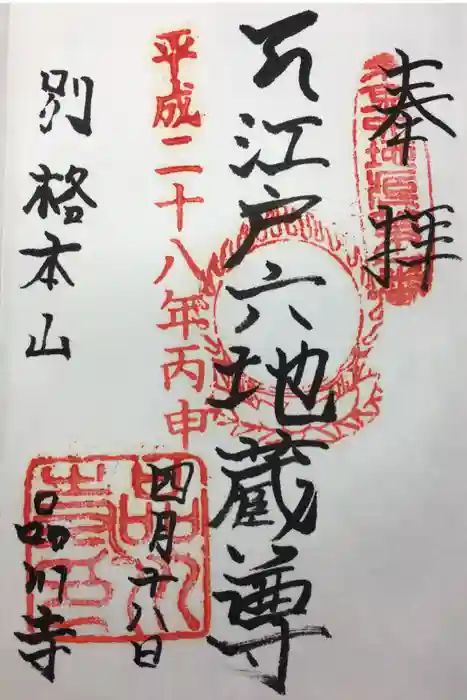 奉拝
江戸六地蔵尊
平成二十八年丙申
四月廿八日
別格本山
品川寺